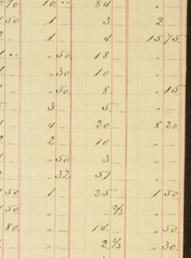 10 . . 84
50 1 3 2
1 4 15 75
1 . . 50 18
30 10
50 8 15
3 5
4 20 8 20
2 10
50 3
32 51
50 1 25 1 50
50 2/3
80 14 50
2 2/3 30